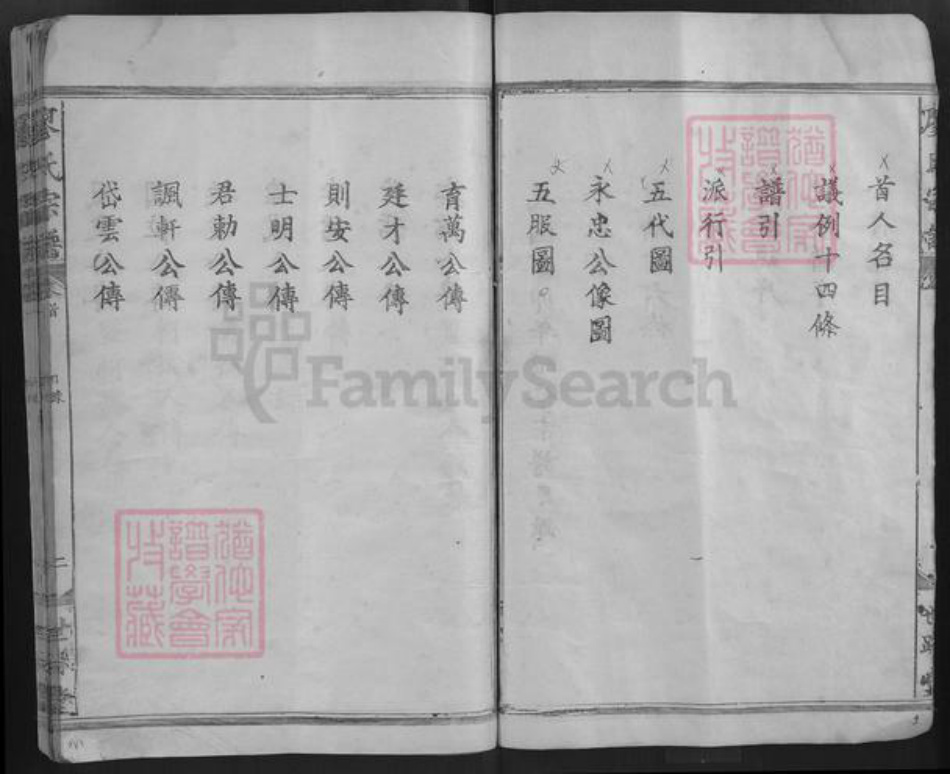 首人名目
議例十四條
譜引
派行引
五代圖
永忠公像圖
五服圖
育萬公傳
廷才公傳
則安公傳
士明公傳
君勅公傳
諷軒公傳
岱雲公傳
廖氏宗譜
二
世綵堂
FamilySearch
譜學會
收藏